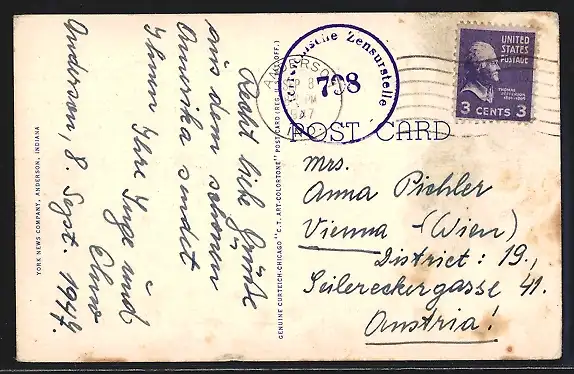 Recht liebe Grüße
aus dem schönen
Amerika sendet
Ihnen Ihre Inge und
Anderson, 8. Sept. 1947.
YORK NEWS COMPANY, ANDERSON, INDIANA
GENUINE CURTEICH-CHICAGO "C.T. ART-COLORTONE" POST CARD (REG. U.S. PAT. OFF.)
Zensurstelle
798
ANDERSON
PM
1947
UNITED
STATES
POSTAGE
THOMAS
JEFFERSON
3 CENTS 3
POST CARD
Mrs.
Anna Pichler
Vienna - (Wien)
District: 19.,
Seilereckergasse 41.
Austria!